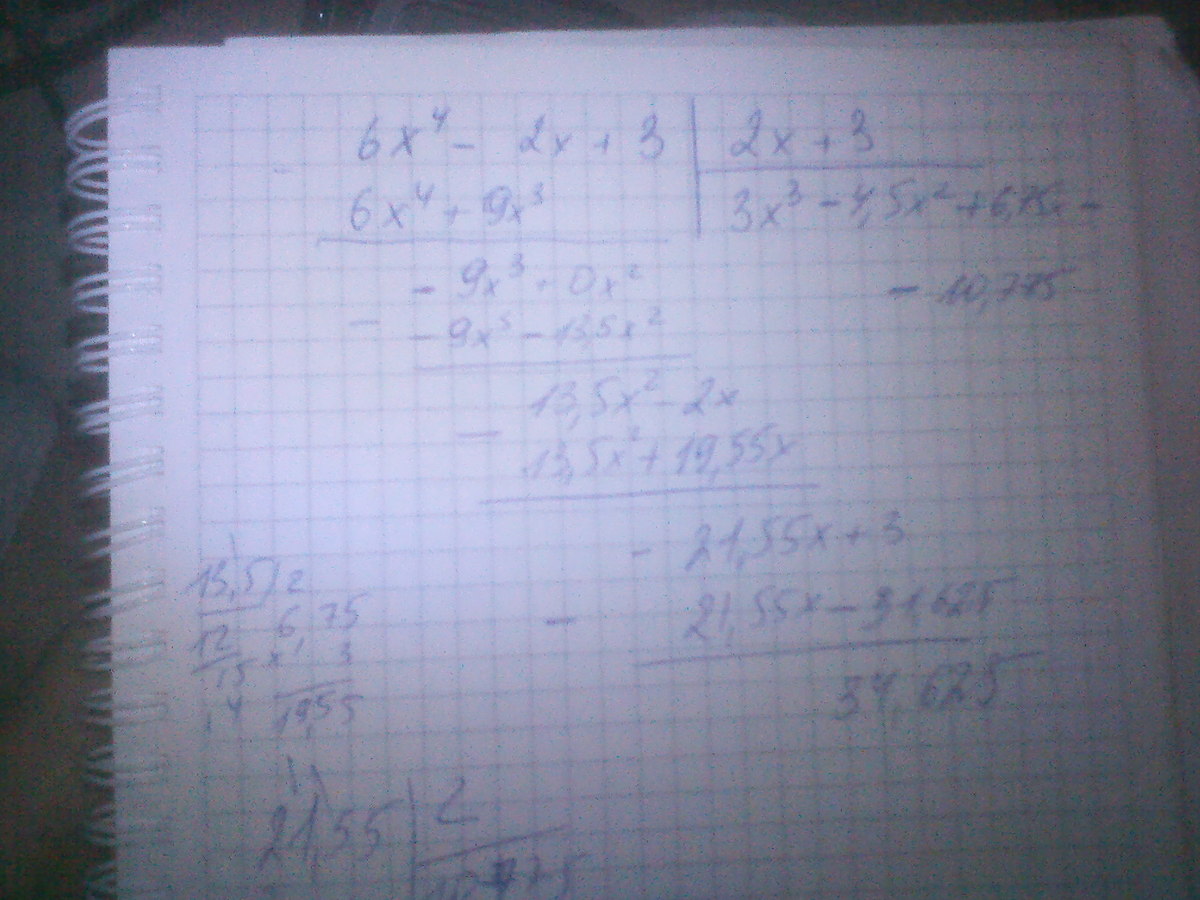 6x⁴ - 2x + 3 | 2x + 3
6x⁴ + 9x³ | 3x³ - 4,5x² + 6,75x -
- 9x³ + 0x² - 10,775
- - 9x³ - 13,5x²
13,5x² - 2x
- 13,5x² + 19,55x
- 21,55x + 3
- 21,55x - 31,625
34,625
13,5 | 2
12 6,75
15 × 3
14 19,55
21,55 | 2
10,775